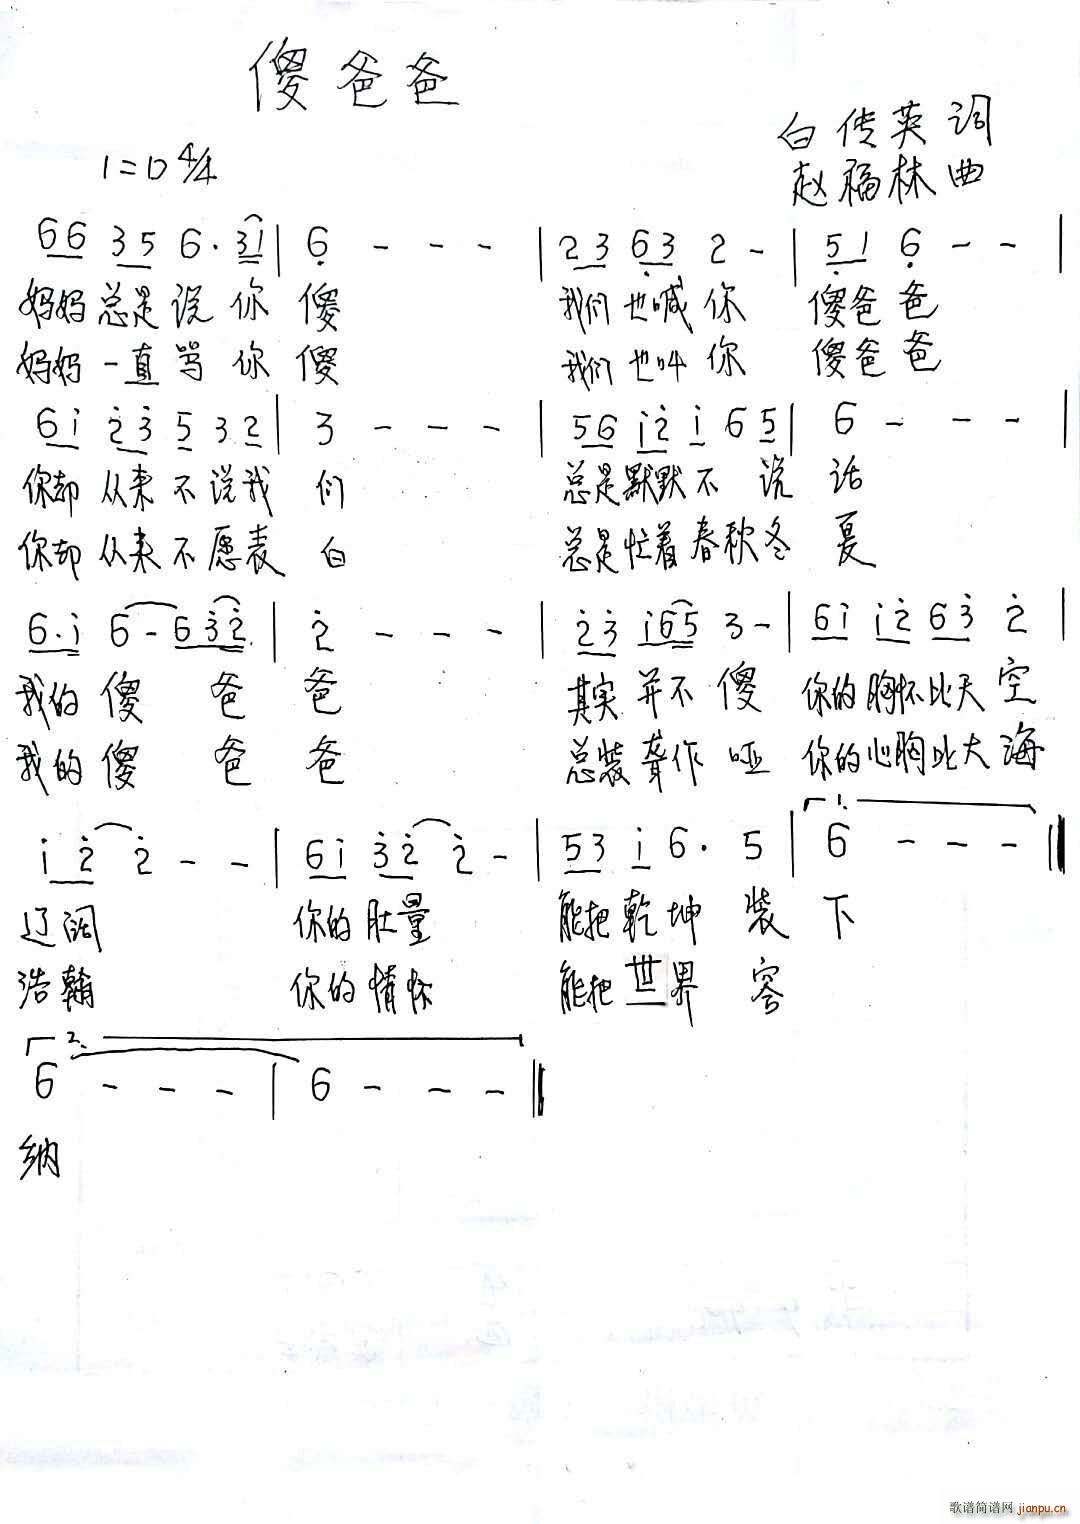 傻爸爸
白传英词
1=D 4/4
赵福林曲
66 35 6· 31 | 6 - - - | 23 63 2 - | 51 6 - - |
妈妈总是说你傻 我们也喊你 傻爸爸
妈妈一直骂你傻 我们也叫你 傻爸爸
6i 23 5 32 | 3 - - - | 56 i2 i 65 | 6 - - - |
你却从来不说我们 总是默默不说话
你却从来不愿表白 总是忙着春秋冬夏
6·i 6-632 | 2 - - - | 23 i65 3- | 6i i2 63 2 |
我的傻爸爸 其实并不傻 你的胸怀比天空
我的傻爸爸 总装聋作哑 你的心胸比大海
1.
i2 2 - - | 6i 32 2 - | 53 i 6· 5 | 6 - - - ‖
辽阔 你的肚量 能把乾坤装下
浩翰 你的情怀 能把世界容
2.
6 - - - | 6 - - - ‖
纳
歌谱简谱网 jianpu.cn